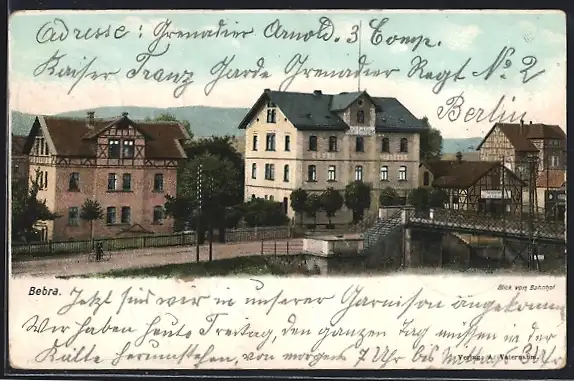 Adresse: Grenadier Arnold. 3 Comp.
Kaiser Franz Garde Grenadier Regt No 2
Berlin
Bebra.
Blick vom Bahnhof
Jetzt sind wir in unserer Garnison angekomm
Wir haben heute Freitag, den ganzen Tag müssen in der
Kälte herumstehen, von morgens 7 Uhr bis 3 Uhr
Verlag: A. Vaternahm.